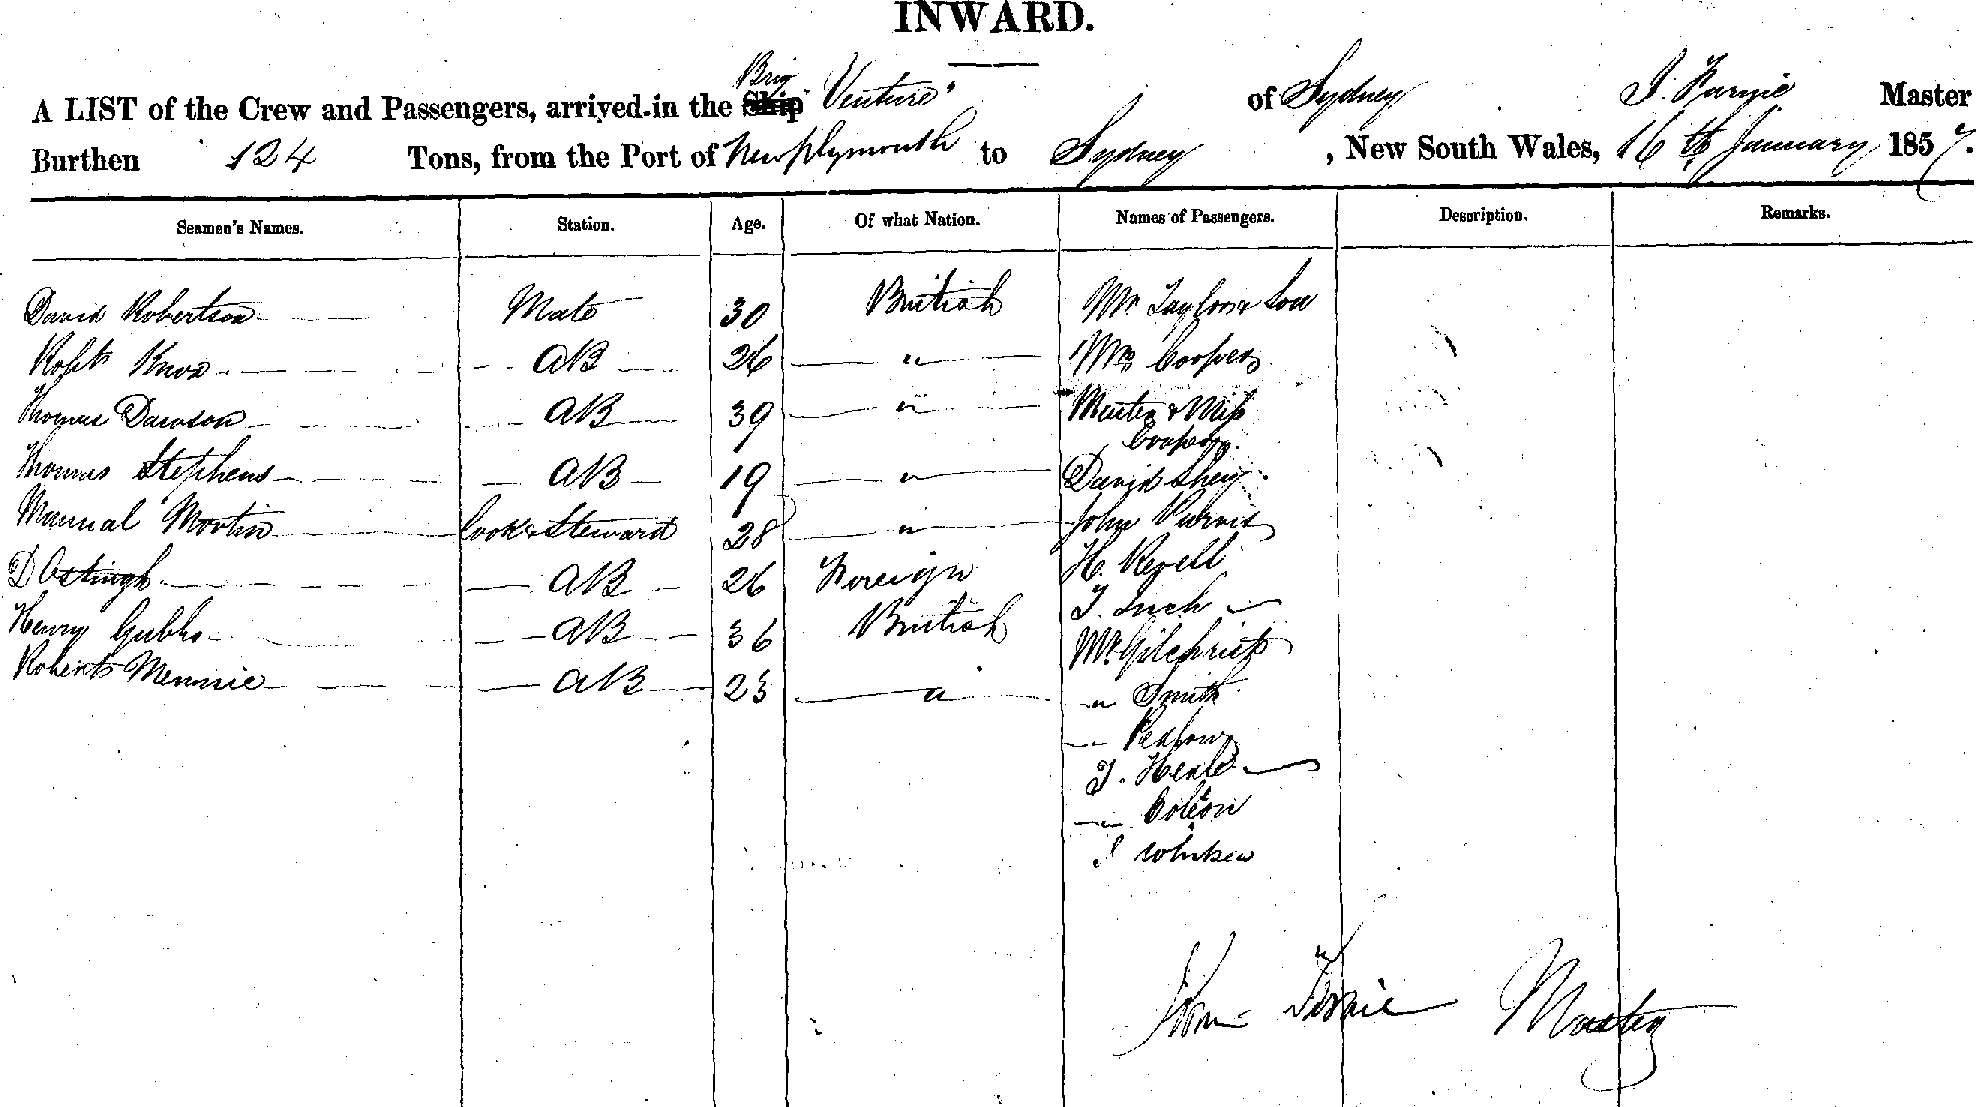 INWARD.
A LIST of the Crew and Passengers, arrived in the Ship Brig "Venture" of Sydney J. Fernie Master
Burthen 124 Tons, from the Port of New Plymouth to Sydney, New South Wales, 16th January 1857.
Seamen's Names. Station. Age. Of what Nation. Names of Passengers. Description. Remarks.
David Robertson Mate 30 British Mr Taylor & Son
Robt Knox AB 26 " Mrs Cooper
Thomas Dawson AB 39 " Master & Miss
Cooper
Thomas Stephens AB 19 " David
Manual Cook & Steward 28 " John Purvis
D AB 26 Foreign H. Revell
Henry Gubbs AB 36 British J. Inch
Robert Mennie AB 23 " Mr Gilchrist
" Smith
"
J. Heale
" Colton
J
John Fernie Master